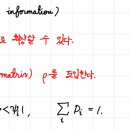 information)
로 확장할 수 있다.
matrix) ρ를 도입한다.
, Σ_i P_i = 1.